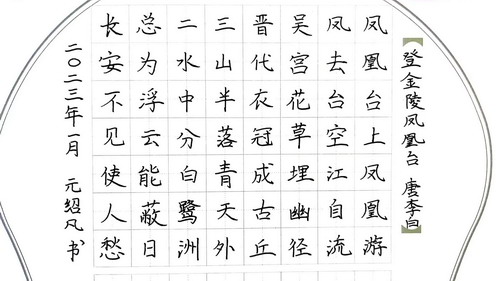 【登金陵凤凰台 唐李白】
凤凰台上凤凰游
凤去台空江自流
吴宫花草埋幽径
晋代衣冠成古丘
三山半落青天外
二水中分白鹭洲
总为浮云能蔽日
长安不见使人愁
二〇二三年一月 元绍凡书